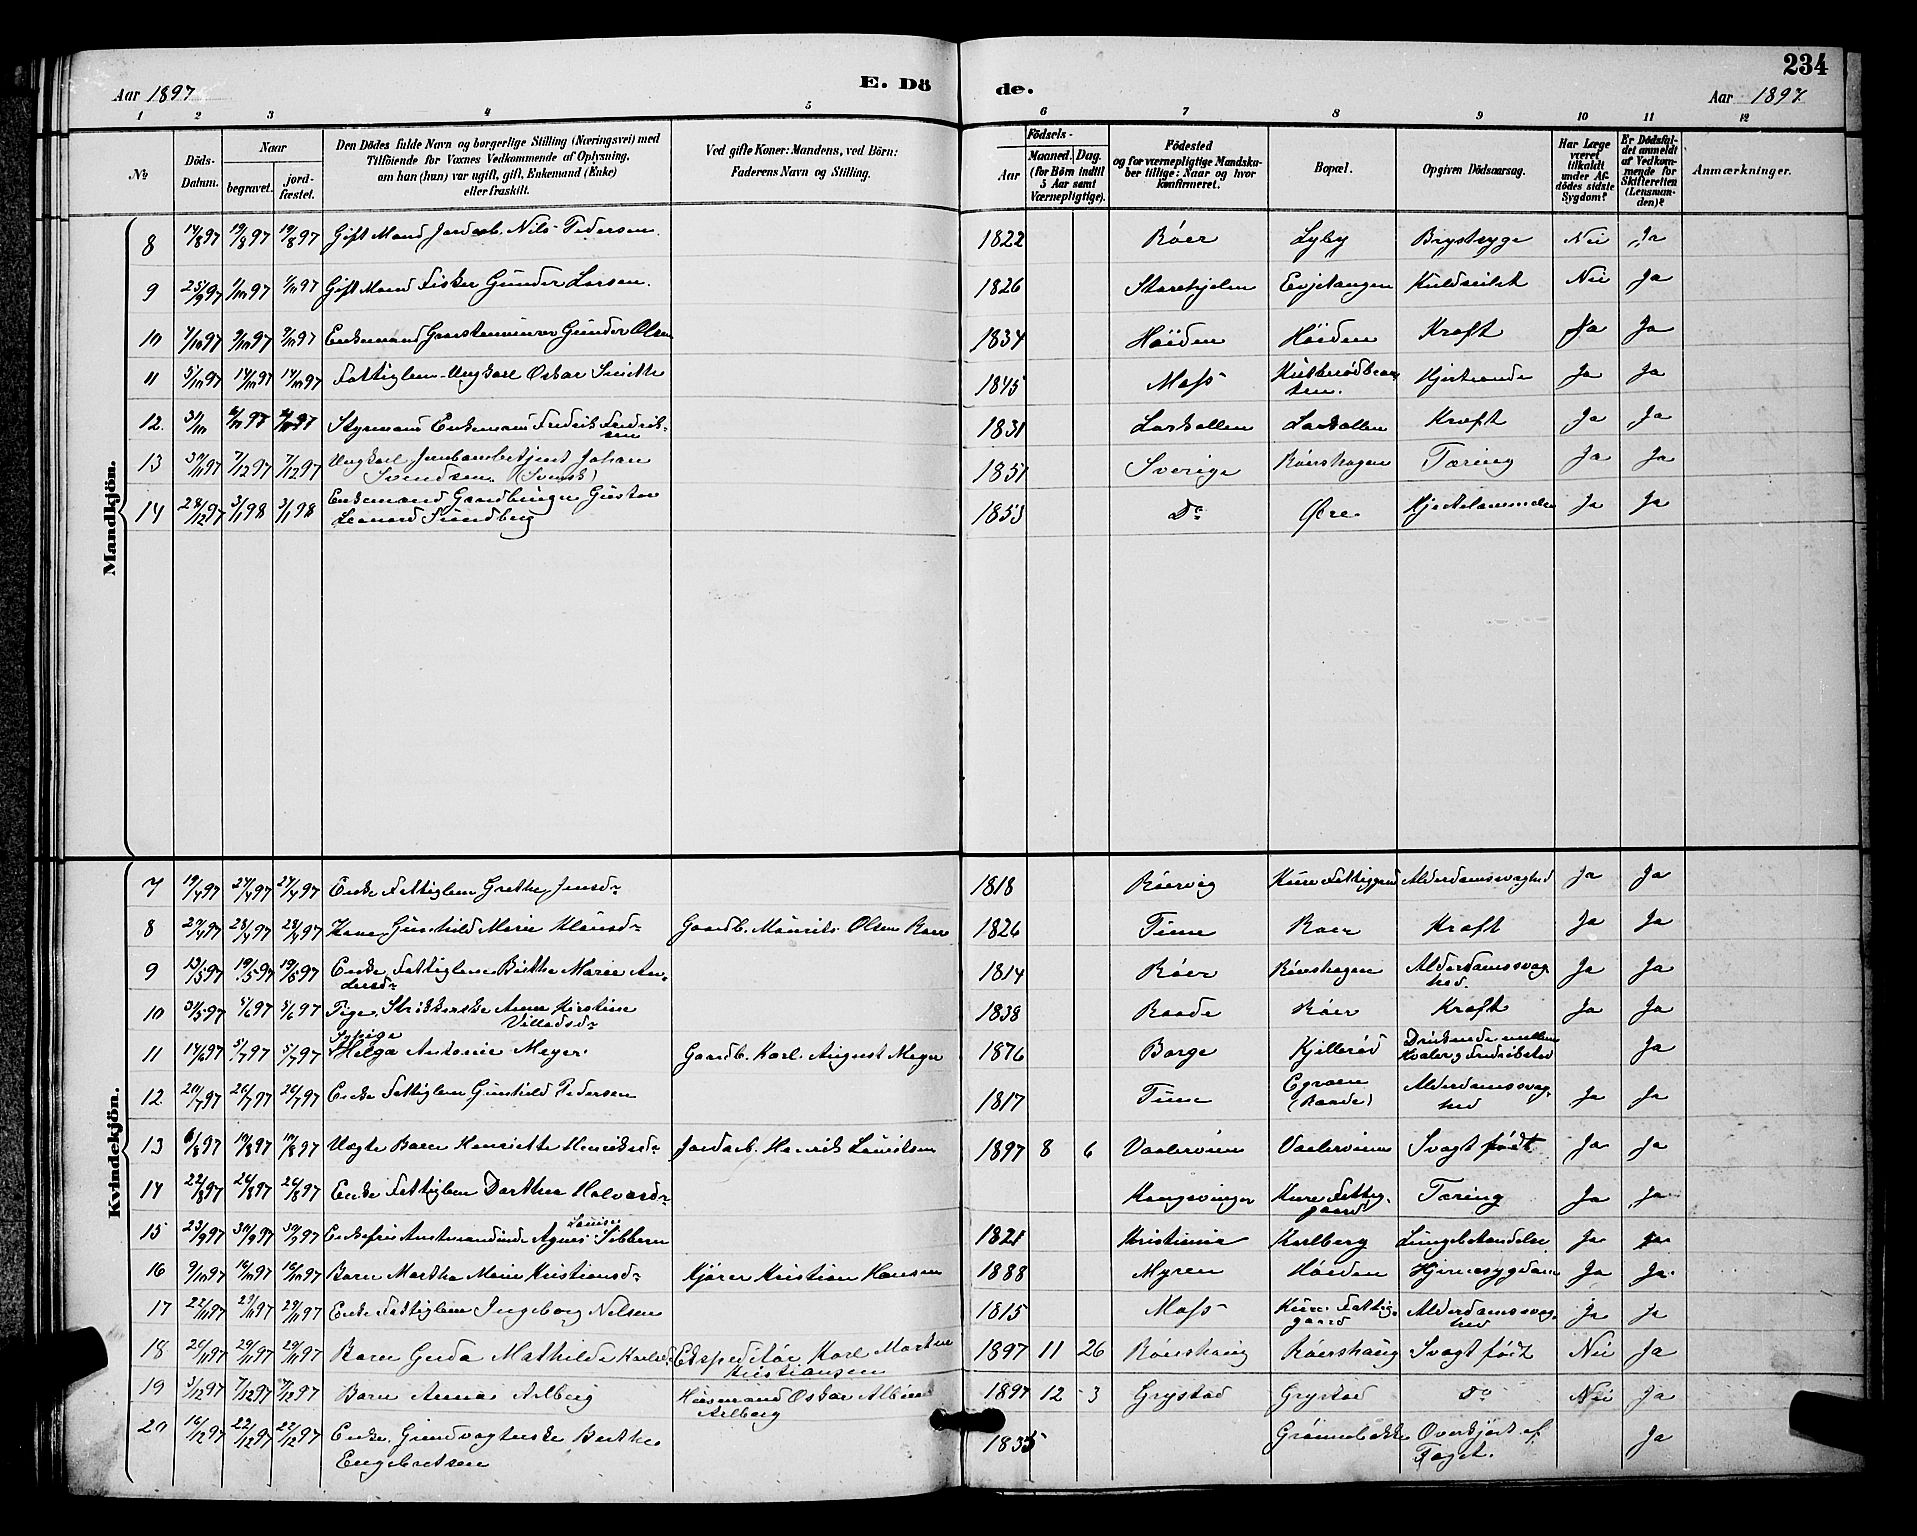 234
Aar 1897
E. Dö
de.
Aar 1897
1 2 3 4 5 6 7 8 9 10 11 12
No
Döds-
Datum.
Naar
begravet.
jord-
fæstet.
Den Dödes fulde Navn og borgerlige Stilling (Næringsvei) med
Tilföiende for Voxnes Vedkommende af Oplysning,
om han (hun) var ugift, gift, Enkemand (Enke)
eller fraskilt.
Ved gifte Koner: Mandens, ved Börn:
Faderens Navn og Stilling.
Födsels-
Aar
Maaned. Dag.
(for Börn indtil
5 Aar samt
Værnepligtige).
Födested
og for værnepligtige Mandska-
ber tillige: Naar og hvor
konfirmeret.
Bopæl.
Opgiven Dödsaarsag.
Har Læge
været
tilkaldt
under Af-
dödes sidste
Sygdom?
Er Dödsfal-
det anmeldt
af Vedkom-
mende for
Skifteretten
(Lensman-
den)?
Anmærkninger.
Mandkjön.
8 14/8 97 19/8 97 19/8 97 Gift Mand Jordarb. Nils Pedersen. 1822 Röer Lyby Brystsyge Nei Ja
9 25/9 97 1/10 97 1/10 97 Gift Mand Fisker Gunder Larsen. 1826 Evjetangen Nei Ja
10 1/10 97 9/10 97 9/10 97 Enkemand Gunder Olsen 1834 Höiden Höiden Kræft Ja Ja
11 5/10 97 14/10 97 14/10 97 Fattiglem Ungkarl Oskar Smith 1845 Moss Ja Ja
12. 31/10 6/11 97 97 Styrmand Enkemand Fredrik Fredrik-
sen 1831 Larkollen Larkollen Kræft Ja Ja
13 30/11 97 7/12 97 7/12 97 Ungkarl Jernbanebetjent Johan
Svendsen (Svensk) 1851 Sverige Röershagen Tæring Ja Ja
14 28/12 97 3/1 98 3/1 98 Enkemand Gustav
Leonard Sundberg 1853 Do Øre Hjertelammelse Ja Ja
Kvindekjön.
7 19/4 97 27/4 97 27/4 97 Enke Fattiglem Grethe Jensdr 1818 Röervig Kure Fattiggaard Alderdomssvaghed Ja Ja
8 21/4 97 28/4 97 28/4 97 Kone Gunhild Marie Klausdr Gaardb. Maurits Olsen Roer 1826 Tune Roer Kræft Ja Ja
9 13/5 97 19/5 97 19/5 97 Enke Fattiglem Birthe Marie An-
dersdr 1814 Röer Röershagen Alderdomssvag-
hed. Ja Ja
10 31/5 97 5/6 97 5/6 97 Pige. Strikkerske Anne Kirstine
Villadsdr 1838 Raade Röer Kræft Ja Ja
11 14/6 97 5/7 97 5/7 97 Sypige
Helga Antonie Meyer. Gaardb. Karl August Meyer 1876 Borge Kjillerød Druknede mellem
Hvaler og Fredrikstad Ja
12. 20/7 97 26/7 97 26/7 97 Enke Fattiglem Gunhild Pedersen 1817 Tune
(Raade) Alderdomssvag-
hed Ja Ja
13 6/8 97 19/8 97 19/8 97 Uægte Barn Henriette Henriksdr Jordarb. Henrik Lauritsen 1897 8 6 Vaalerveien Vaalerveien Svagt født. Ja Ja
14 22/8 97 26/8 97 26/8 97 Enke Fattiglem Dorthea Halvorsdr Kongsvinger Kure Fattig-
gaard Tæring Ja Ja
15 23/9 97 30/9 97 30/9 97 Enkefru Amtmandinde Agnes Louise Sibbern 1821 Kristiania Karlberg Lungebetændelse Ja Ja
16 9/10 97 16/10 97 16/10 97 Barn Martha Marie Kristiansdr Kjører Kristian Hansen 1888 Myren Höiden Hjernesygdom Ja Ja
17 22/11 97 29/11 97 29/11 97 Enke Fattiglem Ingeborg Nilsen 1815 Moss Kure Fattig-
gaard Alderdomssvag-
hed Ja Ja
18 26/11 97 29/11 97 29/11 97 Barn Gerda Mathilde Karlsdr Ekspeditør Karl Martin
Kristiansen 1897 11 26 Röershaug Röershaug Svagt født Nei Ja
19 3/12 97 7/12 97 7/12 97 Barn Anna Arlberg Husmand Oskar Albin
Arlberg 1897 12 3 Grystad Grystad Do Nei Ja
20 16/12 97 22/12 97 22/12 97 Enke. Grindvogterske Berthe
Engebretsen 1835 Grønnebakke Overkjørt af
Toget. Ja